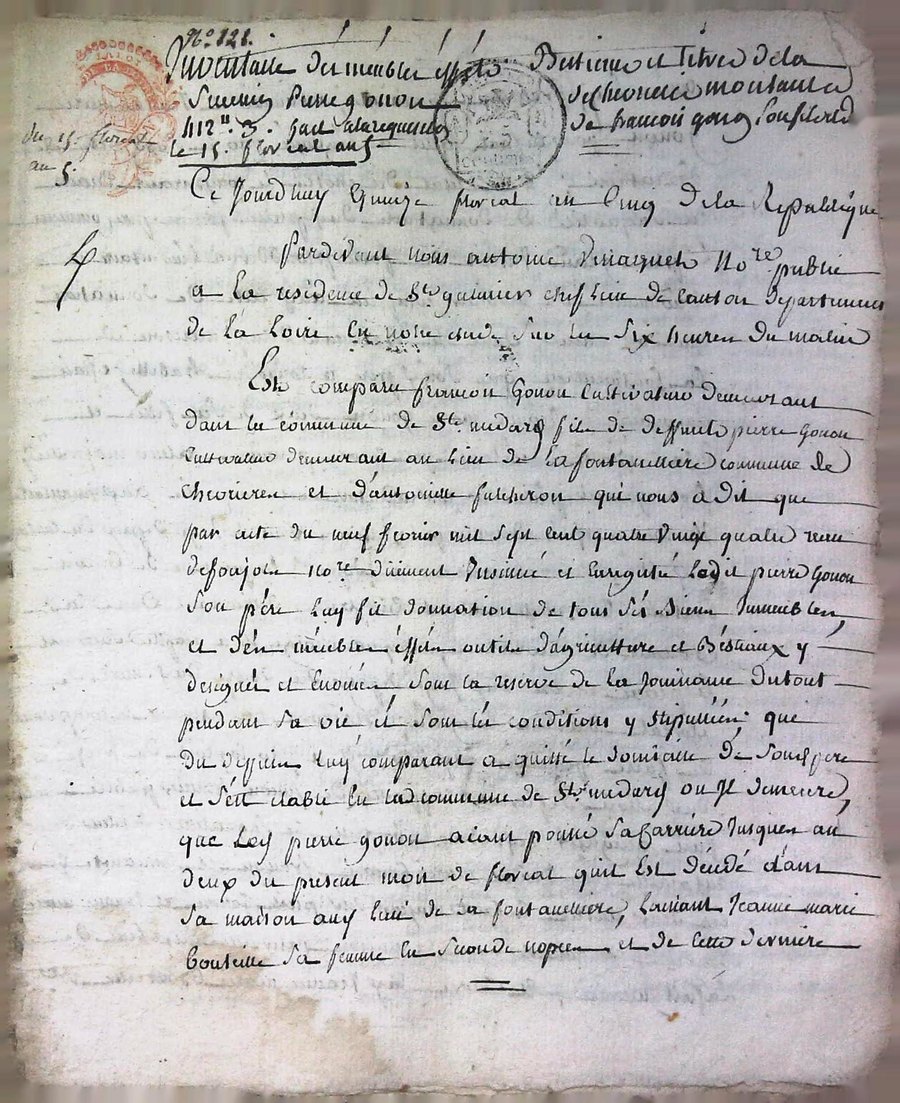 N.° 121.
Inventaire des meubles effets Bestiaux et titres de la
Succession Pierre gonon de Chevrieres montant a
412 ^lt 3. fait a la requete de francois gonon son fils
le 15. floreal an 5
du 15. floreal
au 5.
Ce Jourdhuy quinze floreal an Cinq de la Republique
Pardevant nous antoine no^re public
a la residence de S^t galmier chef lieu de canton departement
de la Loire en notre etude sur les six heures du matin
Est comparu francois Gonon Cultivateur demeurant
dans la commune de S^t. medard fils de deffunt pierre Gonon
Cultivateur demeurant au lieu de la fontanelliere commune de
Chevrieres et d'antoinette fulcheron qui nous a dit que
par acte du neuf fevrier mil sept cent quatre vingt quatre recu
defoujols no^re duement Insinué et Enregistré Led^it pierre Gonon
Son pére Luy fit donnation de tous sés Biens Immeubles,
et dés méubles éfféts outils d'agriculture et Béstiaux y
designés et Enoncés sous la reserve de la Jouissance du tout
pendant sa vie et sous lés conditions y stipullées que
du depuis Luy comparant a quitté le domicille de son d. pere
et s'ést etablé en lad commune de S^t. medard ou Il demeure,
que Led pierre gonon aiant poussé sa Carrière Jusques au
deux du present mois de floreal quil Est décédé dans
sa maison aud lieu de la fontanelliere, Laissant Jeanne marie
bouteille sa femme en seconde nopces et de cette derniere